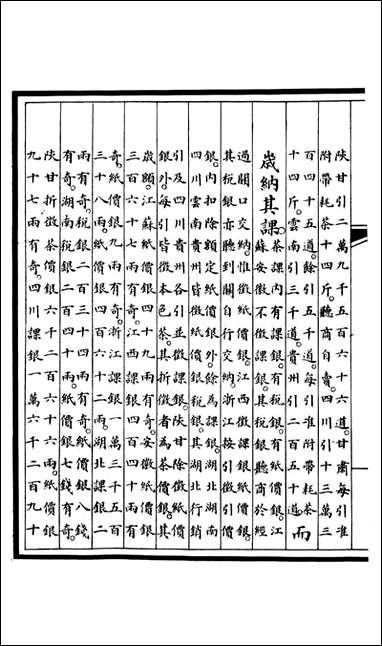 陝甘引二萬九千五百六十六道甘肅每引准
附帶耗茶十四斤聽商自賣四川引十三萬三
百四十五道餘引五千道每引准附帶耗茶
十四斤雲南引三千道貴州引二百五十道而
歲納其課茶課內有課銀有稅銀有紙價銀江
蘇安徽不徵課銀其稅銀聽商於經
過關口交納惟徵紙價銀江西徵課銀紙價銀
其稅銀亦聽到關自行交納浙江按引徵引價
銀內扣除額定紙價銀外餘為課銀湖北湖南
四川雲南貴州皆徵紙價銀稅銀其湖北行銷
引及四川貴州各引並徵課銀陝甘除徵紙價
銀外每引皆徵本色茶其折徵者為茶價銀其
歲額江蘇紙價銀四十九兩有奇安徽紙價銀
三百六十七兩有奇江西課銀四百四十兩有
奇紙價銀九兩有奇浙江課銀一萬三千五百
三十八兩紙價銀四百六十二兩湖北課銀二
兩有奇稅銀二百三十兩有奇紙價銀八錢
有奇湖南稅銀二百四十兩紙價銀七錢有奇
陝甘折徵茶價銀六千二百六十六兩紙價銀
九十七兩有奇四川課銀一萬六千二百九十